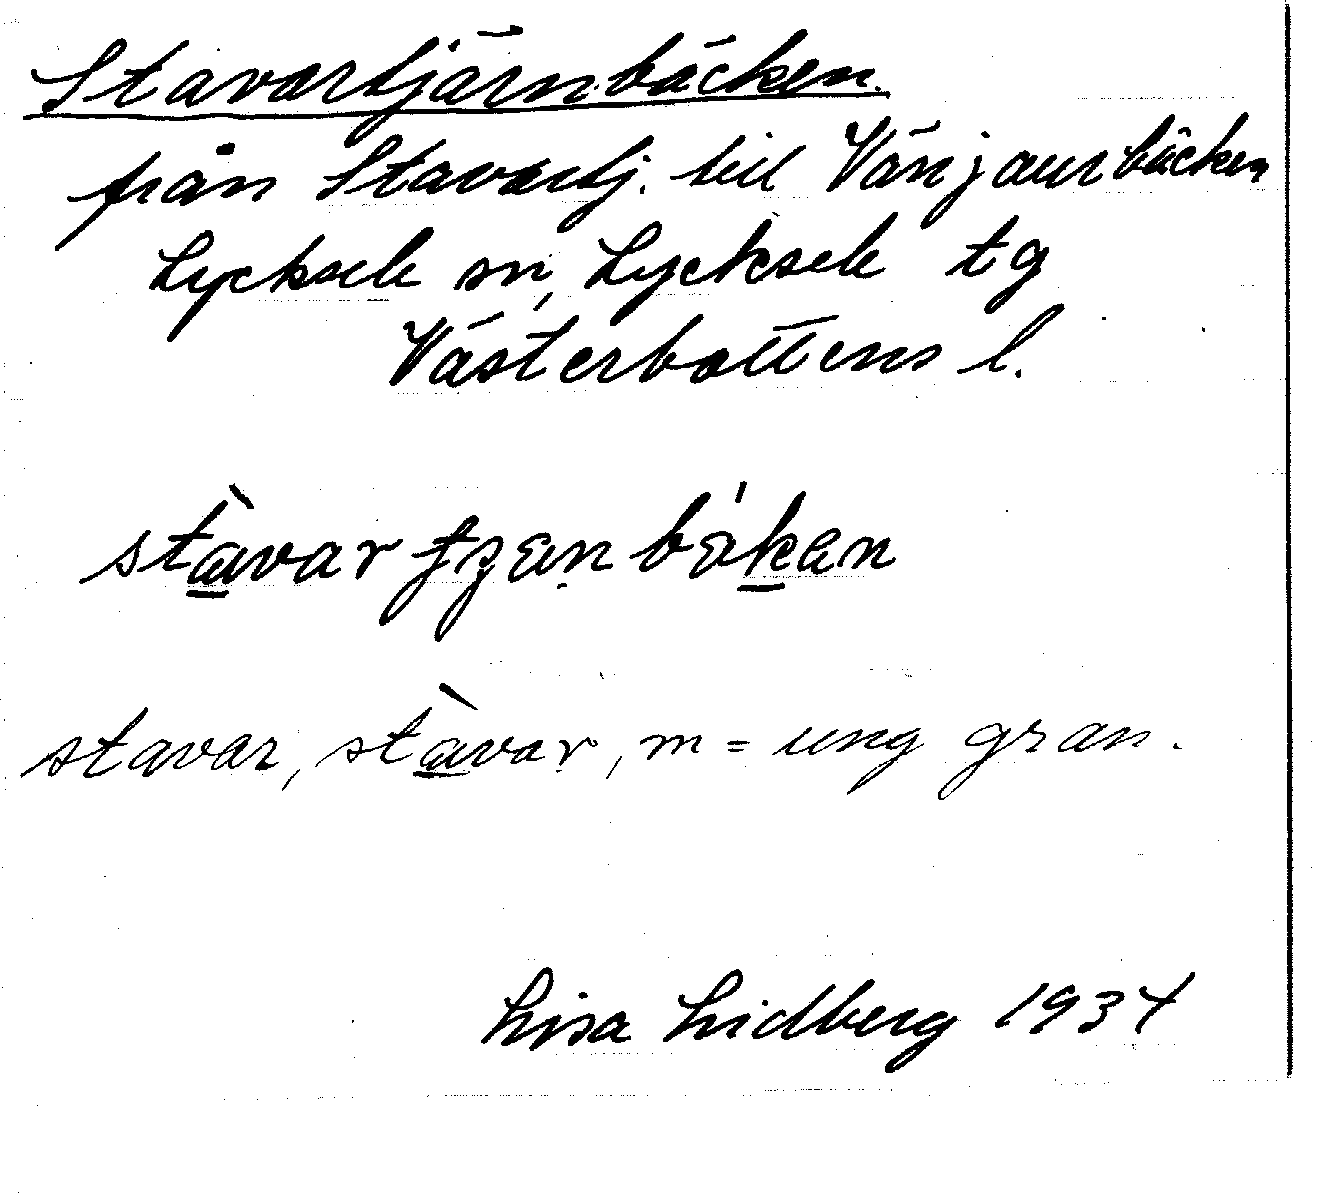 Stavartjärnbäcken.
från Stavartj. till Vänjaurbäcken
Lycksele sn, Lycksele tg
Västerbottens l.
stàvartʒænbǽkan
stavar, stàvar, m = ung gran.
Lisa Lidberg 1934